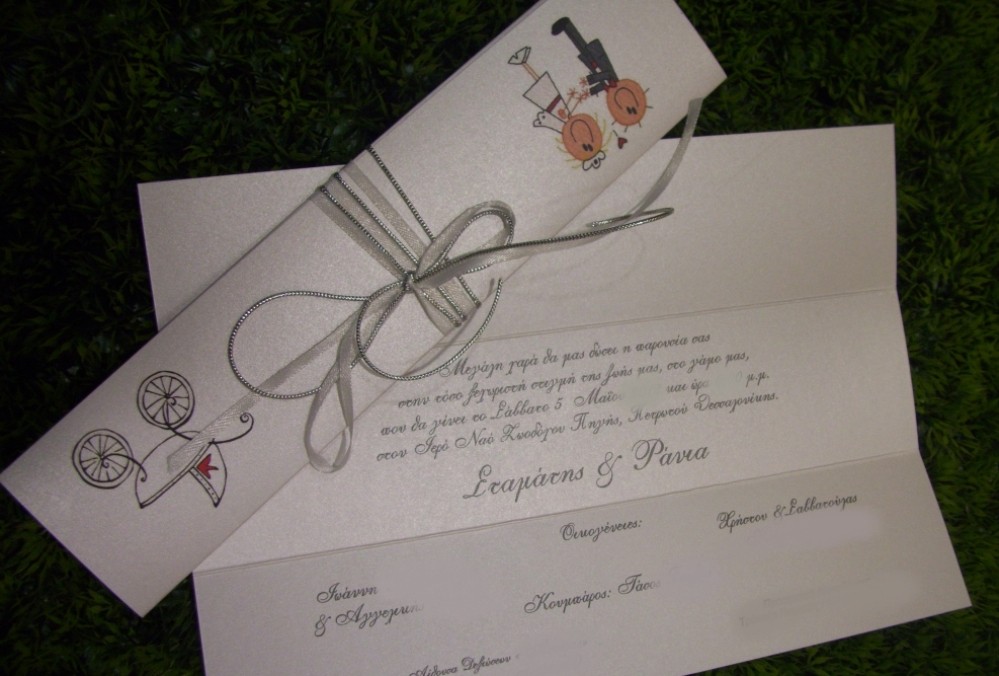 Μεγάλη χαρά θα μας δώσει η παρουσία σας
στην τόσο ξεχωριστή στιγμή της ζωής μας, στο γάμο μας,
που θα γίνει το Σάββατο 5 Μαΐου και ώρα μ.μ.
στον Ιερό Ναό Ζωοδόχου Πηγής, Πευκωτού Θεσσαλονίκης.
Σταμάτης & Ράνια
Οικογένειες:
Χρήστου & Σαββατούλας
Ιωάννη
& Αγγελικ
Κουμπάρος: Τάσος
Αίθουσα Δεξιώσεων